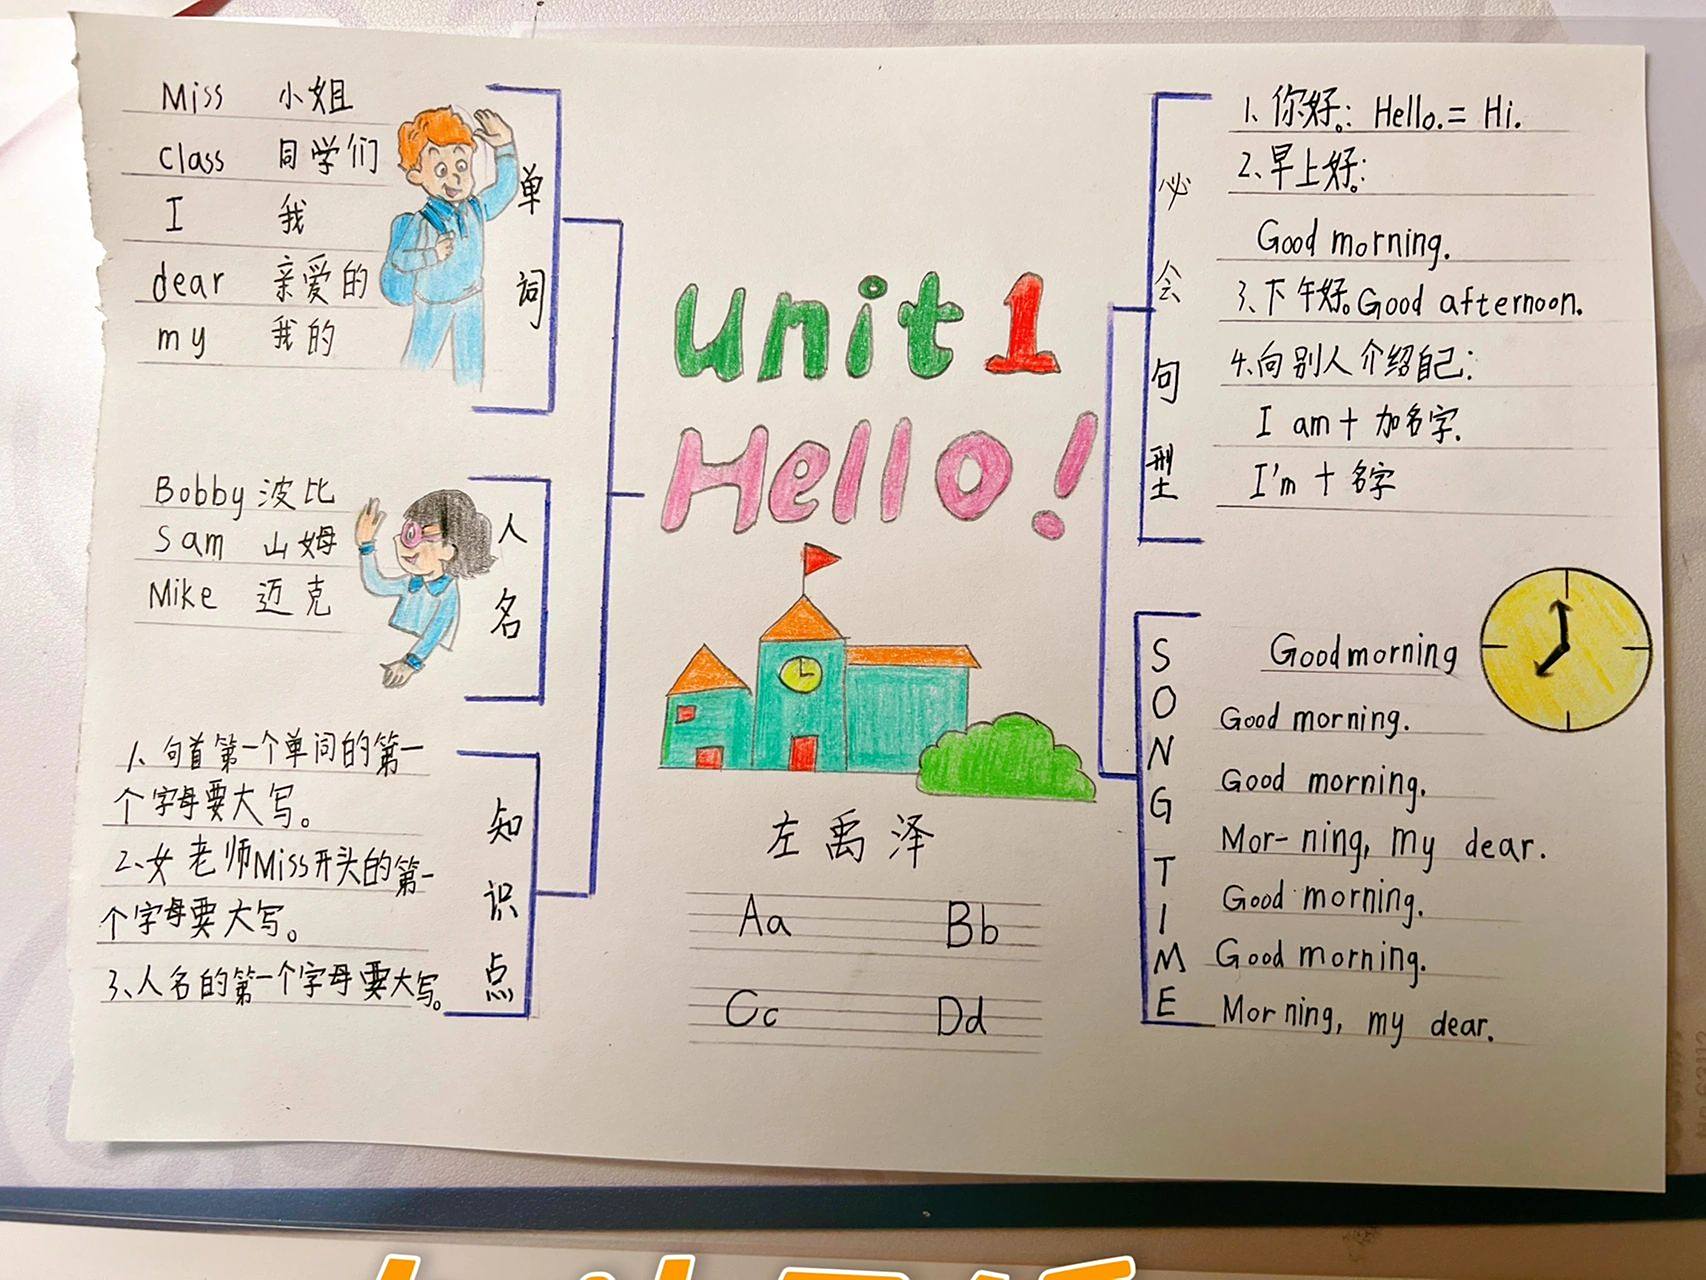 Miss 小姐
class 同学们
I 我
dear 亲爱的
my 我的
单词
Bobby 波比
Sam 山姆
Mike 迈克
人名
1、句首第一个单词的第一
个字母要大写。
2、女老师Miss开头的第一
个字母要大写。
3、人名的第一个字母要大写。
知识点
unit 1
Hello!
左禹泽
Aa Bb
Cc Dd
必会句型
1、你好。: Hello. = Hi.
2、早上好。:
Good morning.
3、下午好。Good afternoon.
4、向别人介绍自己:
I am + 加名字.
I'm + 名字
SONG TIME
Goodmorning
Good morning.
Good morning.
Mor- ning, my dear.
Good morning.
Good morning.
Mor ning, my dear.